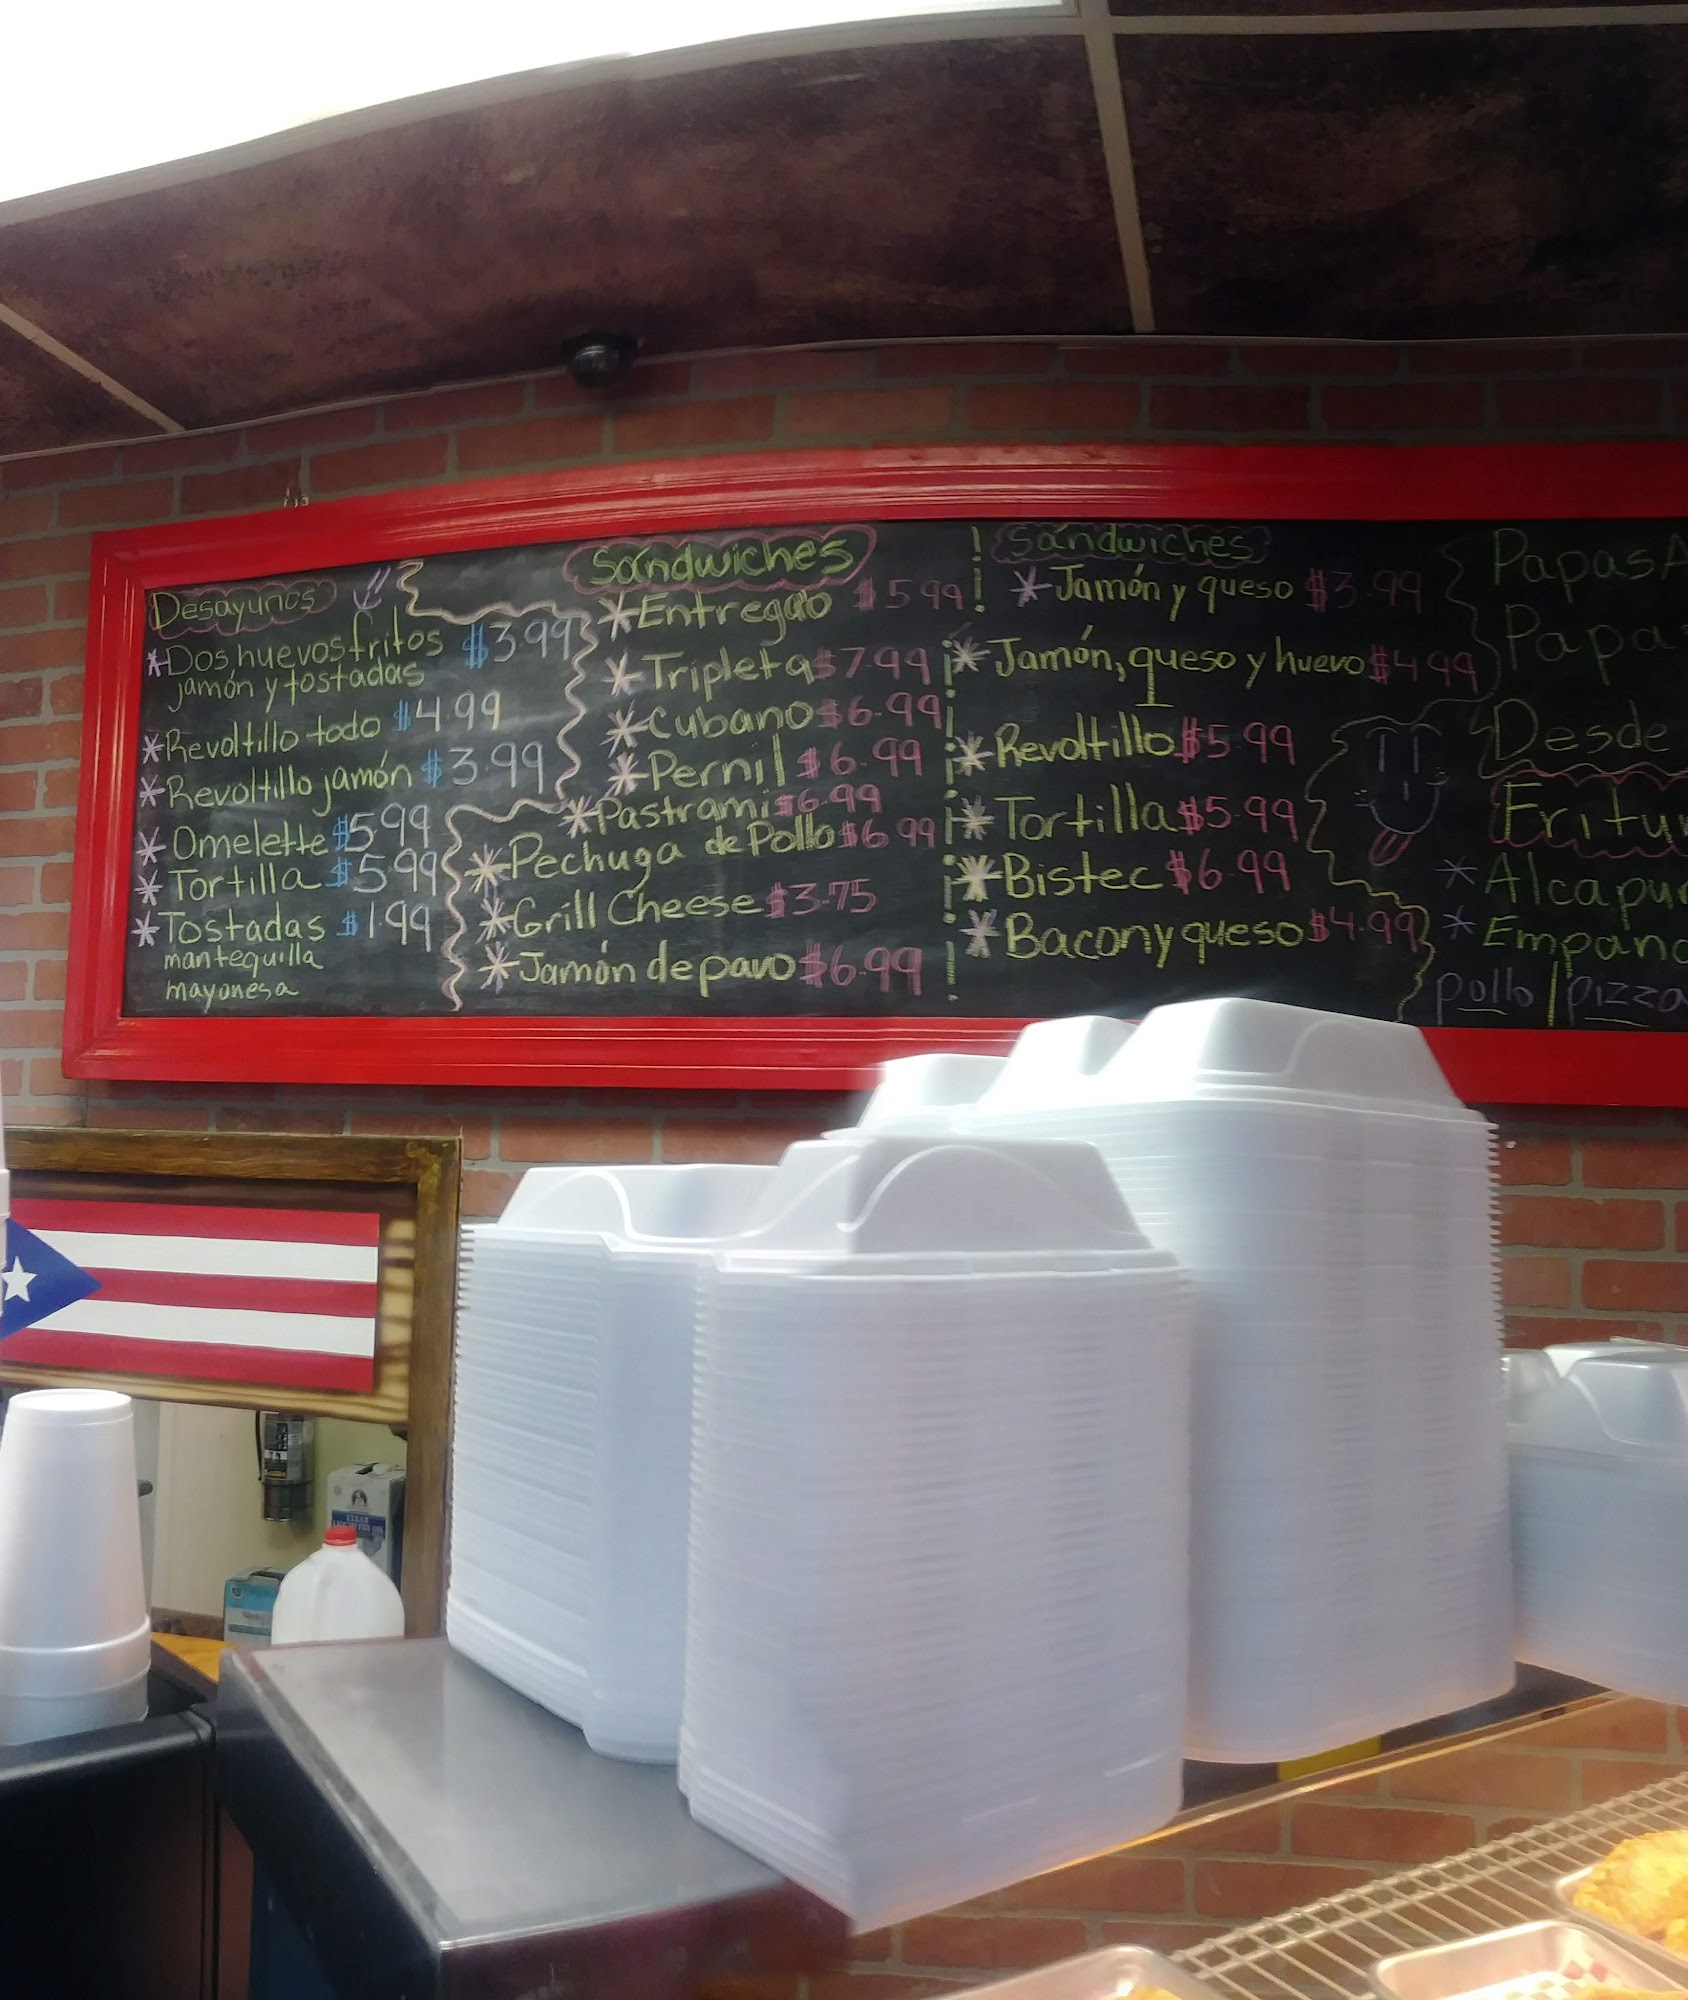 Desayunos
* Dos huevos fritos $3.99
jamón y tostadas
* Revoltillo todo $4.99
* Revoltillo jamón $3.99
* Omelette $5.99
* Tortilla $5.99
* Tostadas $1.99
mantequilla
mayonesa
Sándwiches
* Entregao $5.99
* Tripleta $7.99
* Cubano $6.99
* Pernil $6.99
* Pastrami $6.99
* Pechuga de Pollo $6.99
* Grill Cheese $3.75
* Jamón de pavo $6.99
Sándwiches
* Jamón y queso $3.99
* Jamón, queso y huevo $4.99
* Revoltillo $5.99
* Tortilla $5.99
* Bistec $6.99
* Bacon y queso $4.99
Papas A
Papas
Desde
Fritu
* Alcapur
* Empana
pollo | pizza
CLEAR